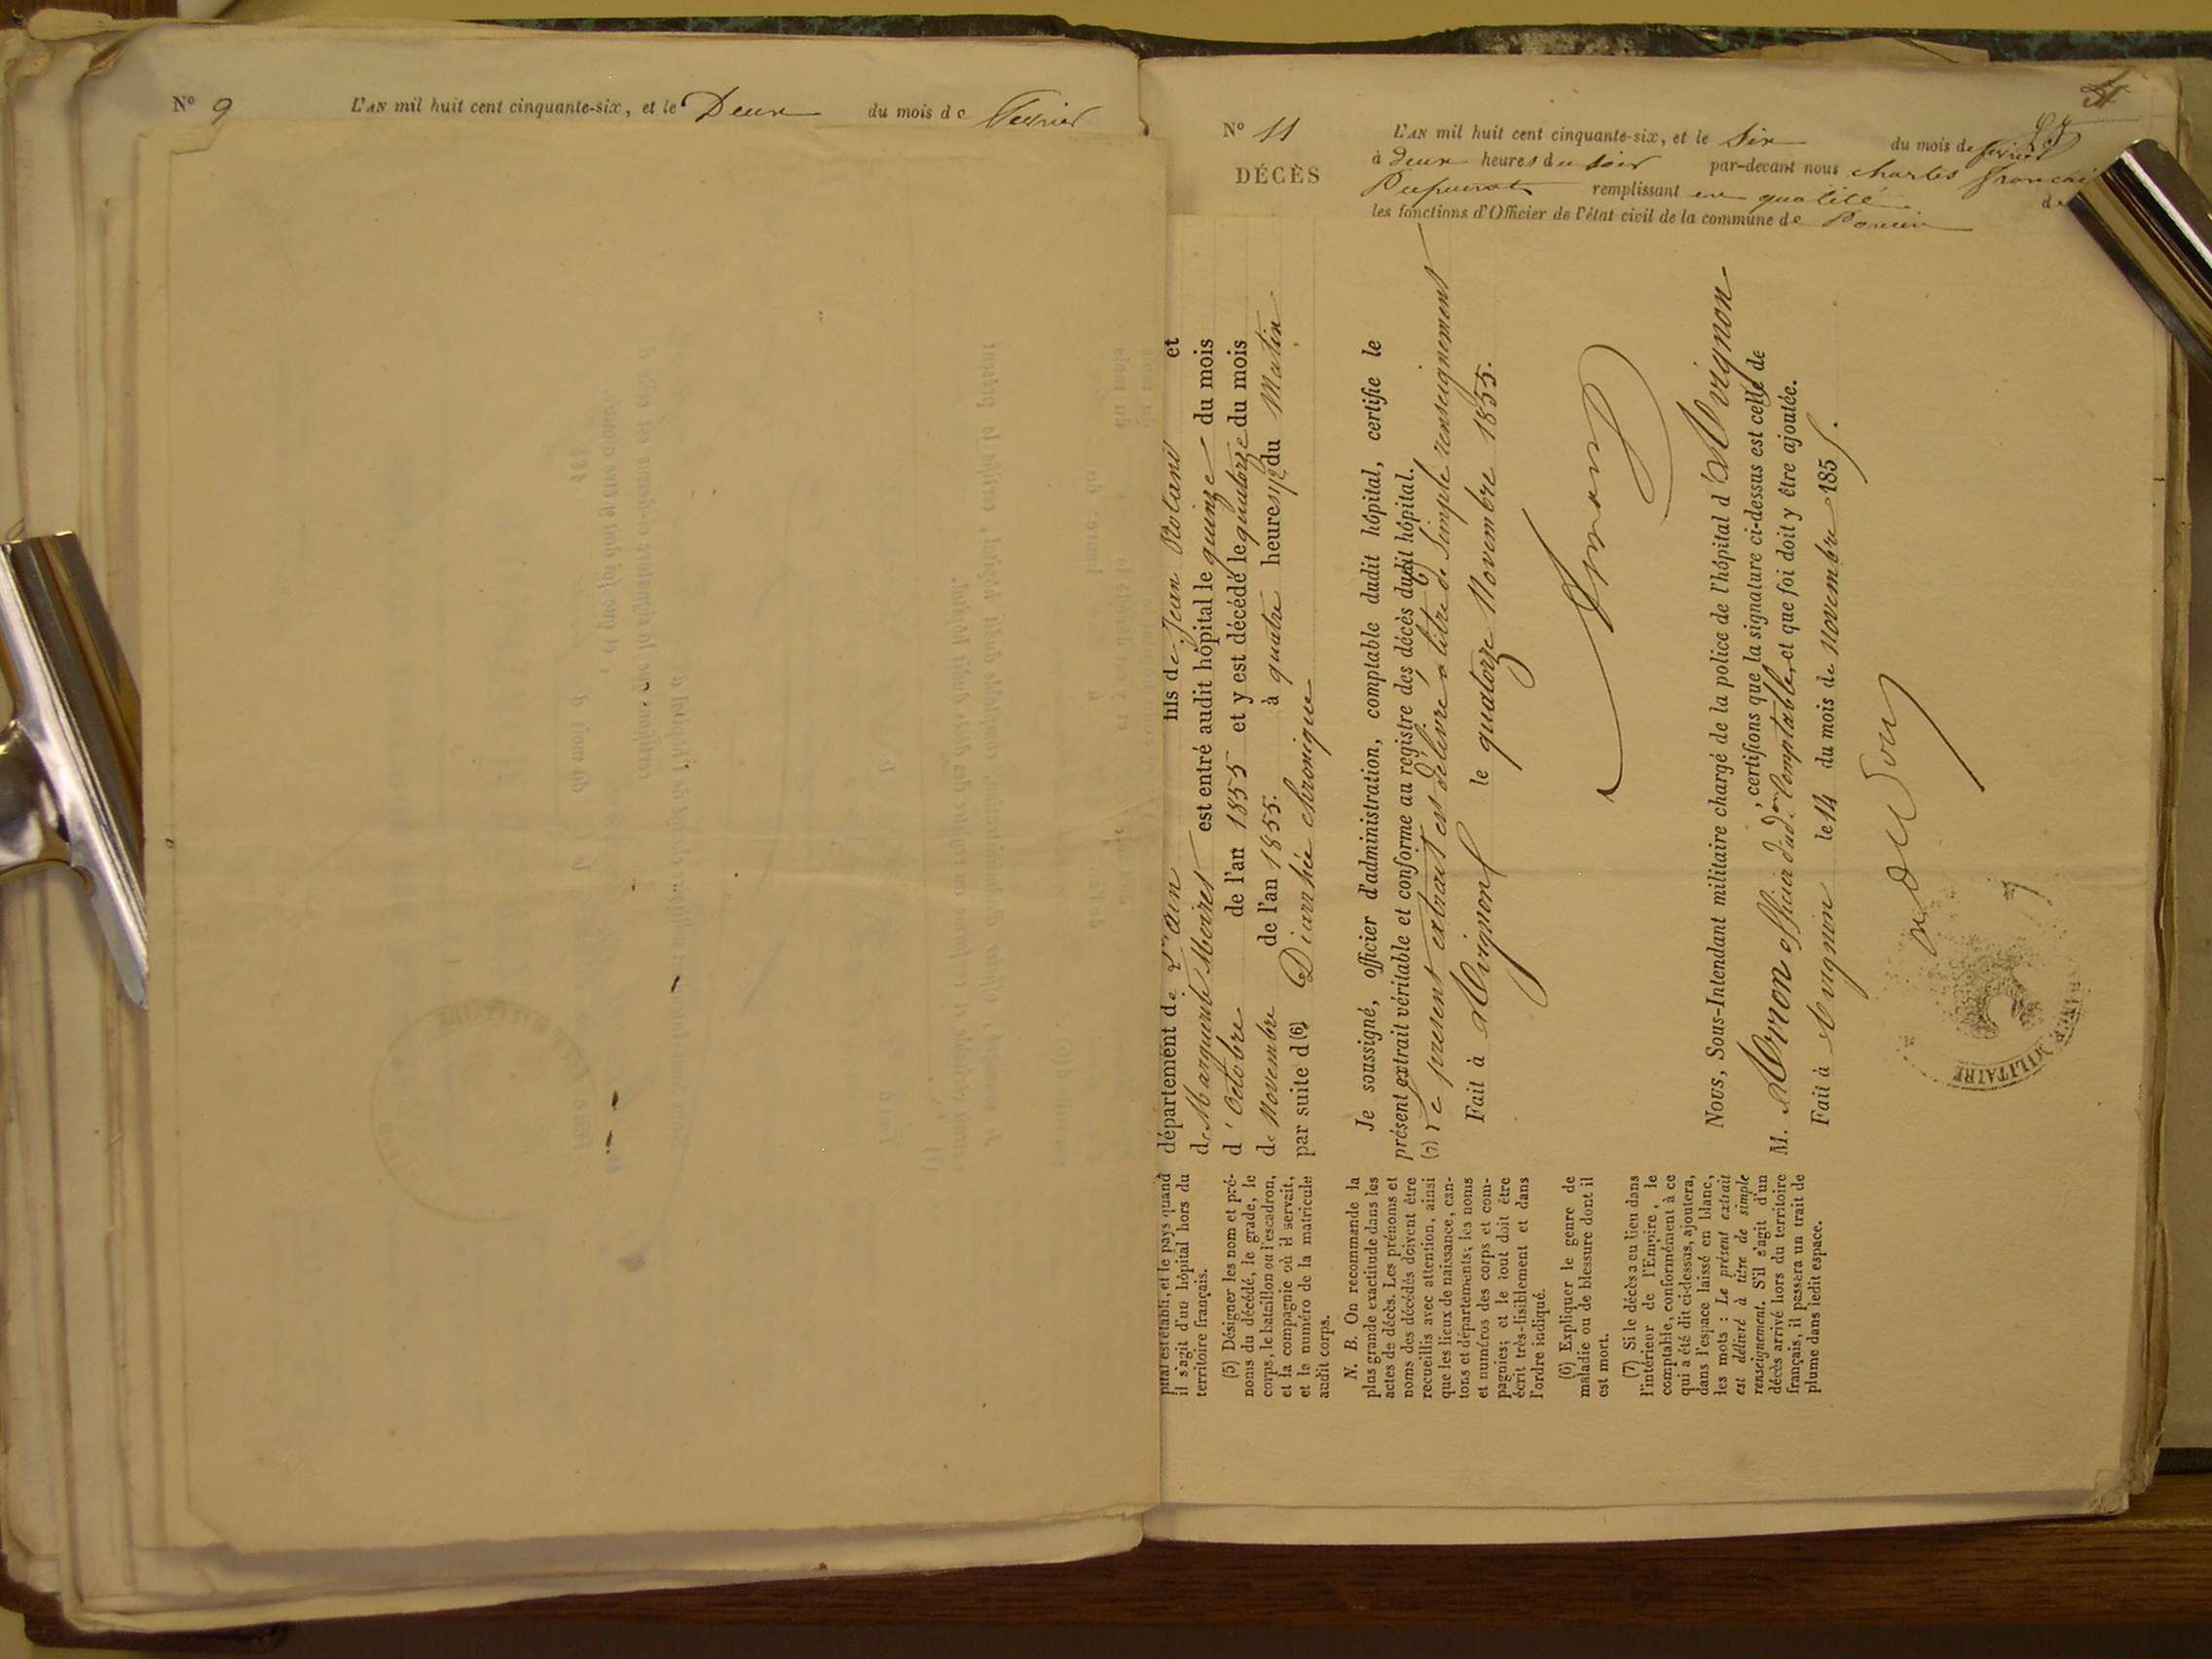 N° 9
L'AN mil huit cent cinquante-six, et le Deux du mois de Fevrier
N° 11
DÉCÈS
L'AN mil huit cent cinquante-six, et le Six du mois de fevrier
à deux heures du soir par-devant nous charles
remplissant en qualité de
les fonctions d'Officier de l'état civil de la commune de Poncin
département de l'ain fils de Jean Roland et
de Marguerite est entré audit hôpital le quinze du mois
d'Octobre de l'an 1855 et y est décédé le quatorze du mois
de Novembre de l'an 1855. à quatre heures 1/2 du Matin
par suite d(6) Diarrhée chronique
Je soussigné, officier d'administration, comptable dudit hôpital, certifie le
présent extrait véritable et conforme au registre des décès dudit hôpital.
(7) Le présent extrait est délivré à titre de simple renseignement
Fait à Avignon le quatorze Novembre 1855.
Nous, Sous-Intendant militaire chargé de la police de l'hôpital d'Avignon
, certifions que la signature ci-dessus est celle de
M. officier d'ad.on Comptable, et que foi doit y être ajoutée.
Fait à Avignon le 14 du mois de Novembre 1855.
MILITAIRE
pital est établi, et le pays quand
il s'agit d'un hôpital hors du
territoire français.
(5) Désigner les nom et pré-
noms du décédé, le grade, le
corps, le bataillon ou l'escadron,
et la compagnie où il servait,
et le numéro de la matricule
audit corps.
N. B. On recommande la
plus grande exactitude dans les
actes de décès. Les prénoms et
noms des décédés doivent être
recueillis avec attention, ainsi
que les lieux de naissance, can-
tons et départements; les noms
et numéros des corps et com-
pagnies; et le tout doit être
écrit très-lisiblement et dans
l'ordre indiqué.
(6) Expliquer le genre de
maladie ou de blessure dont il
est mort.
(7) Si le décès a eu lieu dans
l'intérieur de l'Empire, le
comptable, conformément à ce
qui a été dit ci-dessus, ajoutera,
dans l'espace laissé en blanc,
les mots : Le présent extrait
est délivré à titre de simple
renseignement. S'il s'agit d'un
décès arrivé hors du territoire
français, il passera un trait de
plume dans ledit espace.